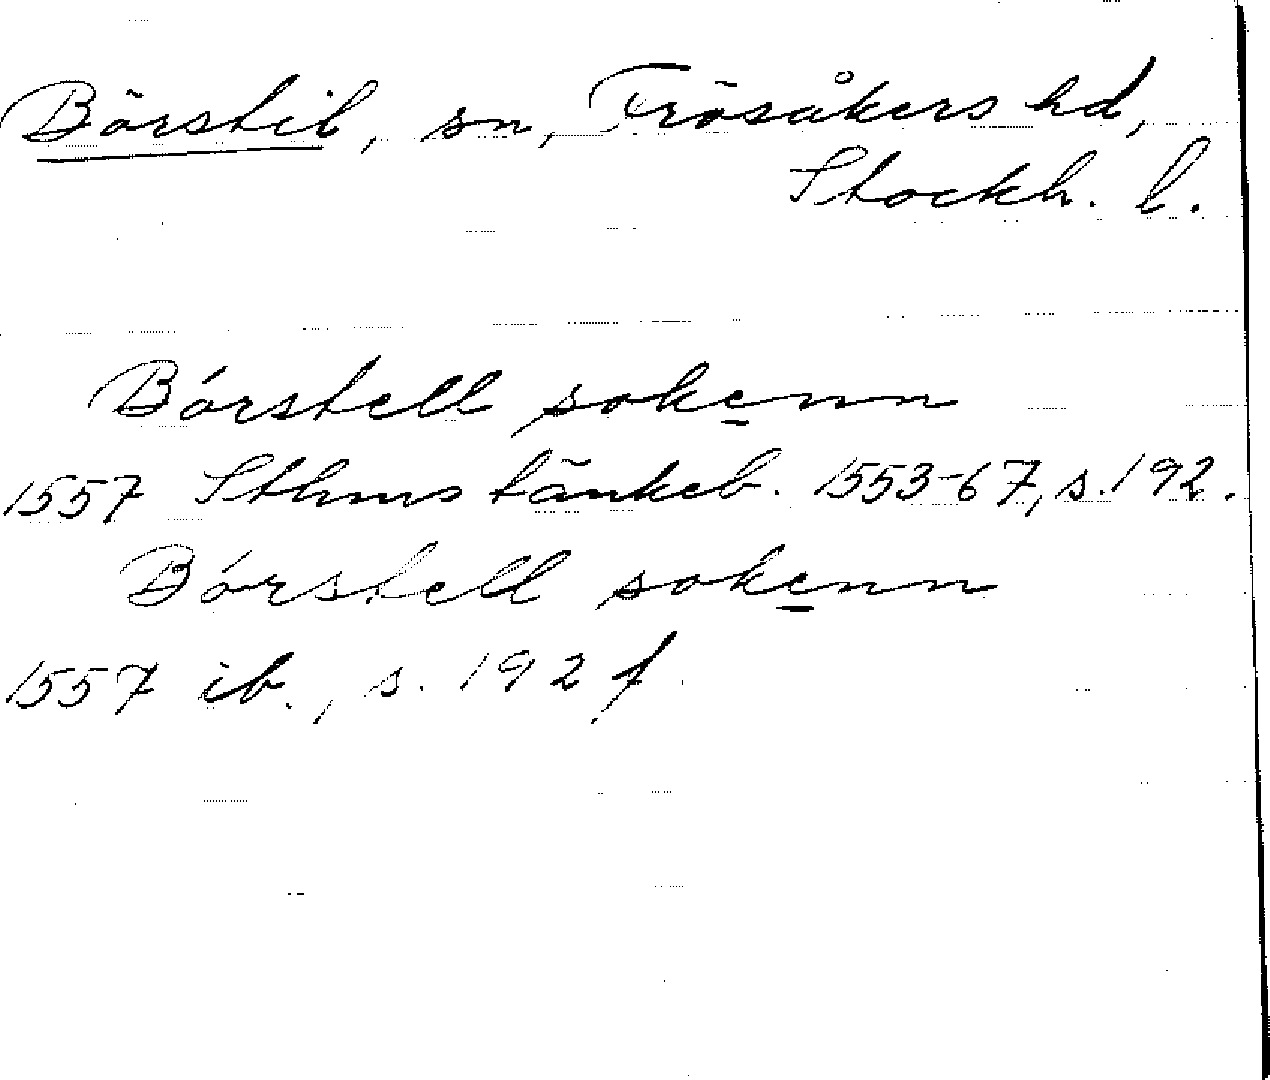 Börstil, sn, Frösåkers hd,
Stockh. l.
Bórstell sokenn
1557 Sthms tänkeb. 1553-67, s. 192.
Bórstell sokenn
1557 ib., s. 192 f.